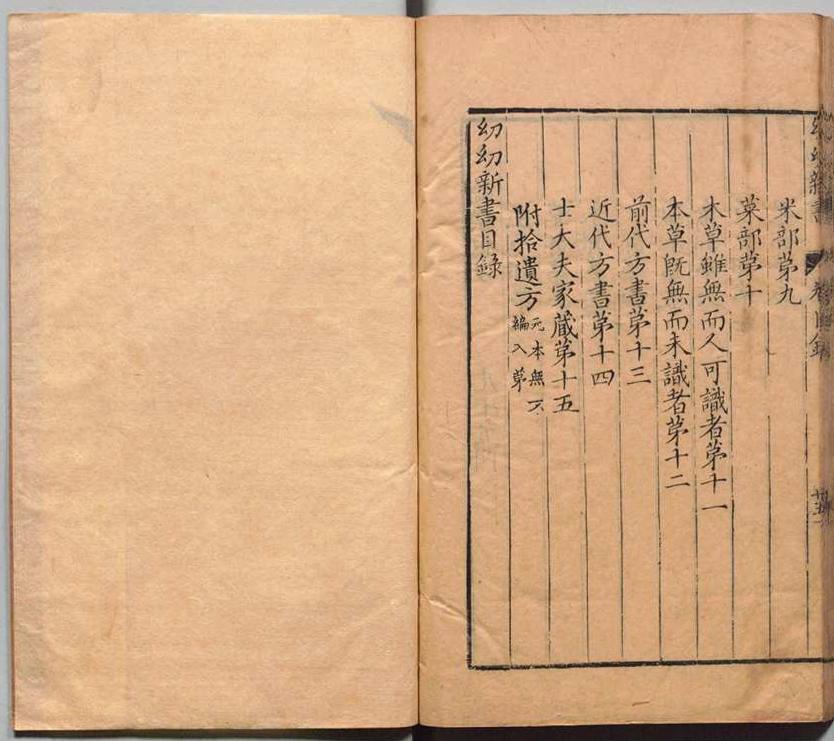 幼幼新書
目錄
米部第九
菜部第十
木草雖無而人可識者第十一
本草旣無而未識者第十二
前代方書第十三
近代方書第十四
士大夫家藏第十五
附拾遺方
元本無不
編入第
幼幼新書目錄